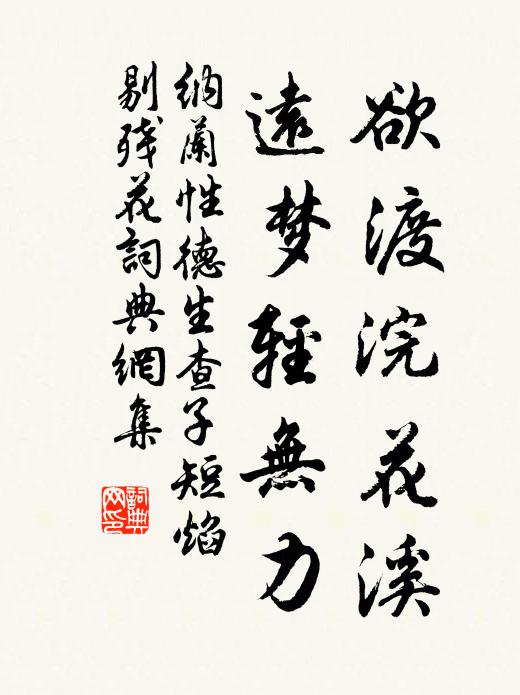 欲渡浣花溪
遠梦輕無力
納蘭性德生查子短焰
剔残花詞典網集
詞典网印